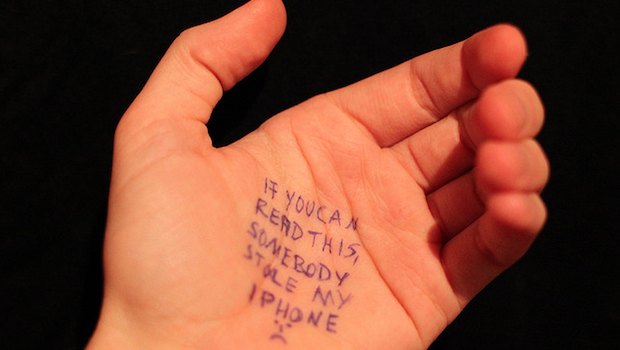 IF YOU CAN
READ THIS,
SOMEBODY
STOLE MY
IPHONE
:(